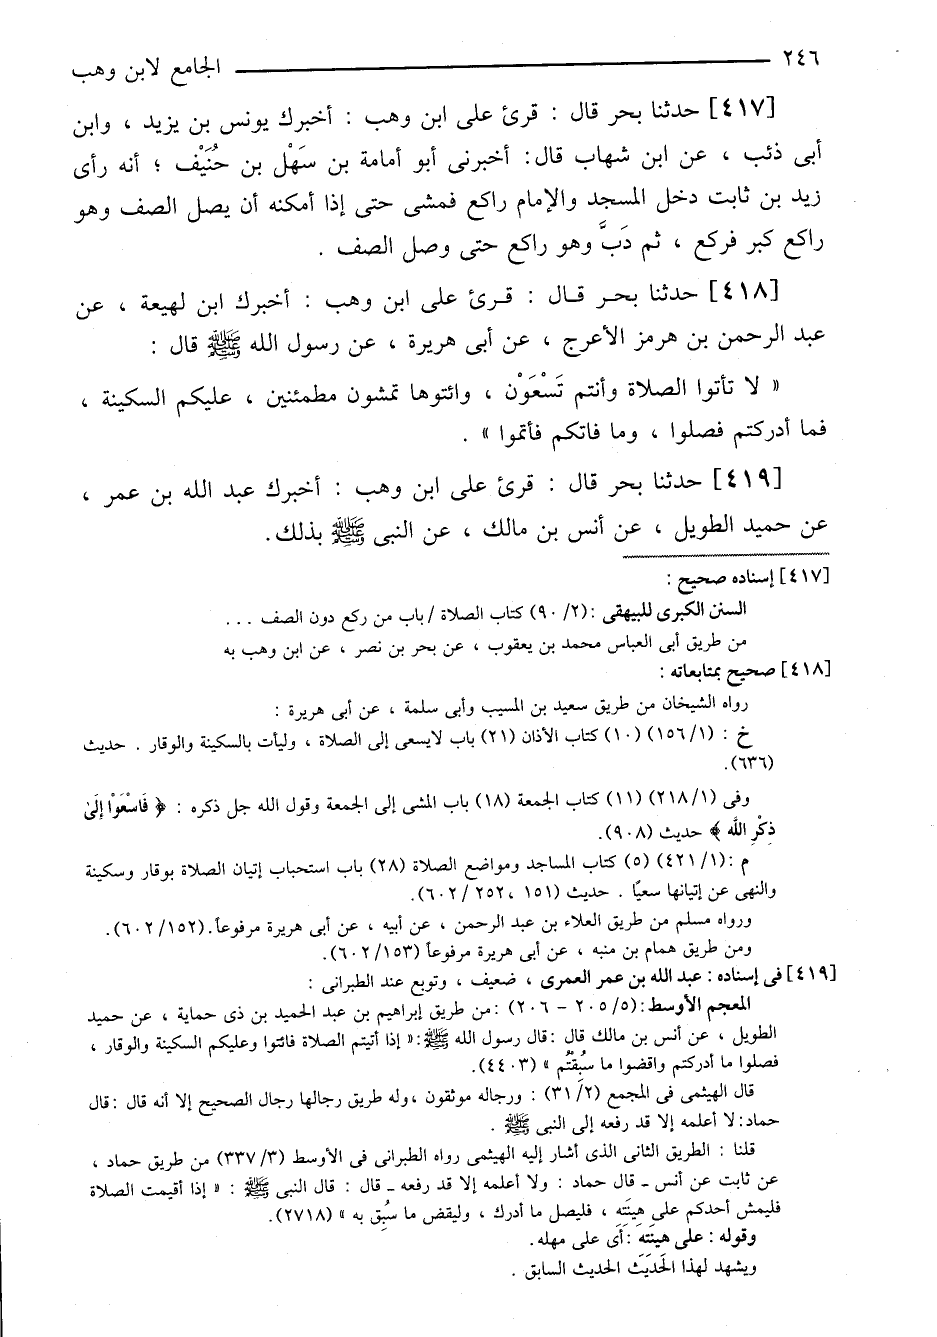 ٢٤٦ ــــــــــــــــــــ الجامع لابن وهب
[٤١٧] حدثنا بحر قال : قرئ على ابن وهب : أخبرك يونس بن يزيد ، وابن
أبى ذئب ، عن ابن شهاب قال: أخبرنى أبو أمامة بن سَهْل بن حُنَيْف ؛ أنه رأى
زيد بن ثابت دخل المسجد والإمام راكع فمشى حتى إذا أمكنه أن يصل الصف وهو
راكع كبر فركع ، ثم دَبَّ وهو راكع حتى وصل الصف .
[٤١٨] حدثنا بحر قال : قرئ على ابن وهب : أخبرك ابن لهيعة ، عن
عبد الرحمن بن هرمز الأعرج ، عن أبى هريرة ، عن رسول الله ﷺ قال :
« لا تأتوا الصلاة وأنتم تَسْعَوْن ، وائتوها تمشون مطمئنين ، عليكم السكينة ،
فما أدركتم فصلوا ، وما فاتكم فأتموا » .
[٤١٩] حدثنا بحر قال : قرئ على ابن وهب : أخبرك عبد الله بن عمر ،
عن حميد الطويل ، عن أنس بن مالك ، عن النبى ﷺ بذلك.
[٤١٧] إسناده صحيح :
السنن الكبرى للبيهقى :(٢/ ٩٠) كتاب الصلاة / باب من ركع دون الصف . . .
من طريق أبى العباس محمد بن يعقوب ، عن بحر بن نصر ، عن ابن وهب به
[٤١٨] صحيح بمتابعاته :
رواه الشيخان من طريق سعيد بن المسيب وأبى سلمة ، عن أبى هريرة :
خ : (١/ ١٥٦) (١٠) كتاب الأذان (٢١) باب لايسعى إلى الصلاة ، وليأت بالسكينة والوقار . حديث
(٦٣٦).
وفى (١/ ٢١٨) (١١) كتاب الجمعة (١٨) باب المشى إلى الجمعة وقول الله جل ذكره : ﴿ فَاسْعَوْا إِلَىٰ
ذِكْرِ اللَّه ﴾ حديث (٩٠٨).
م :(١/ ٤٢١) (٥) كتاب المساجد ومواضع الصلاة (٢٨) باب استحباب إتيان الصلاة بوقار وسكينة
والنهى عن إتيانها سعيًا . حديث (١٥١ ،٢٥٢ /٦٠٢).
ورواه مسلم من طريق العلاء بن عبد الرحمن ، عن أبيه ، عن أبى هريرة مرفوعاً.(١٥٢/ ٦٠٢).
ومن طريق همام بن منبه ، عن أبى هريرة مرفوعاً (١٥٣/ ٦٠٢).
[٤١٩] فى إسناده : عبد الله بن عمر العمرى ، ضعيف ، وتوبع عند الطبرانى :
المعجم الأوسط :(٥/ ٢٠٥ – ٢٠٦) :من طريق إبراهيم بن عبد الحميد بن ذى حماية ، عن حميد
الطويل ، عن أنس بن مالك قال :قال رسول الله ﷺ:« إذا أتيتم الصلاة فائتوا وعليكم السكينة والوقار ،
فصلوا ما أدركتم واقضوا ما سُبِقْتُم » (٤٤٠٣).
قال الهيثمى فى المجمع (٢/ ٣١) : ورجاله موثقون ،وله طريق رجالها رجال الصحيح إلا أنه قال :قال
حماد: لا أعلمه إلا قد رفعه إلى النبى ﷺ .
قلنا : الطريق الثانى الذى أشار إليه الهيثمى رواه الطبرانى فى الأوسط (٣/ ٣٣٧) من طريق حماد ،
عن ثابت عن أنس ـ قال حماد : ولا أعلمه إلا قد رفعه ـ قال : قال النبى ﷺ : « إذا أقيمت الصلاة
فليمش أحدكم على هينَتِه ، فليصل ما أدرك ، وليقض ما سبُق به » (٢٧١٨).
وقوله : على هينَتَه :أى على مهله.
ويشهد لهذا الحديث الحديث السابق .